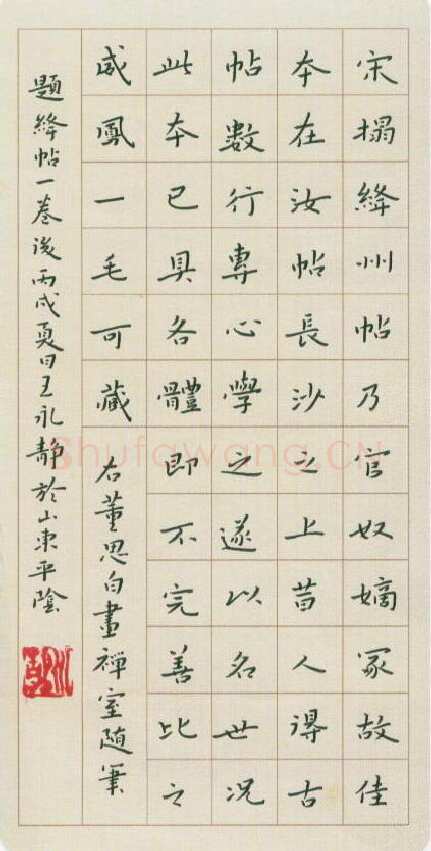 宋搨絳州帖乃官奴嫡冢故佳
本在汝帖長沙之上昔人得古
帖數行專心學之遂以名世况
此本已具各體即不完善比之
威鳳一毛可藏
右董思白畫禪室隨筆
題絳帖一卷後丙戌夏日王永靜於山東平陰
Shufawang.CN